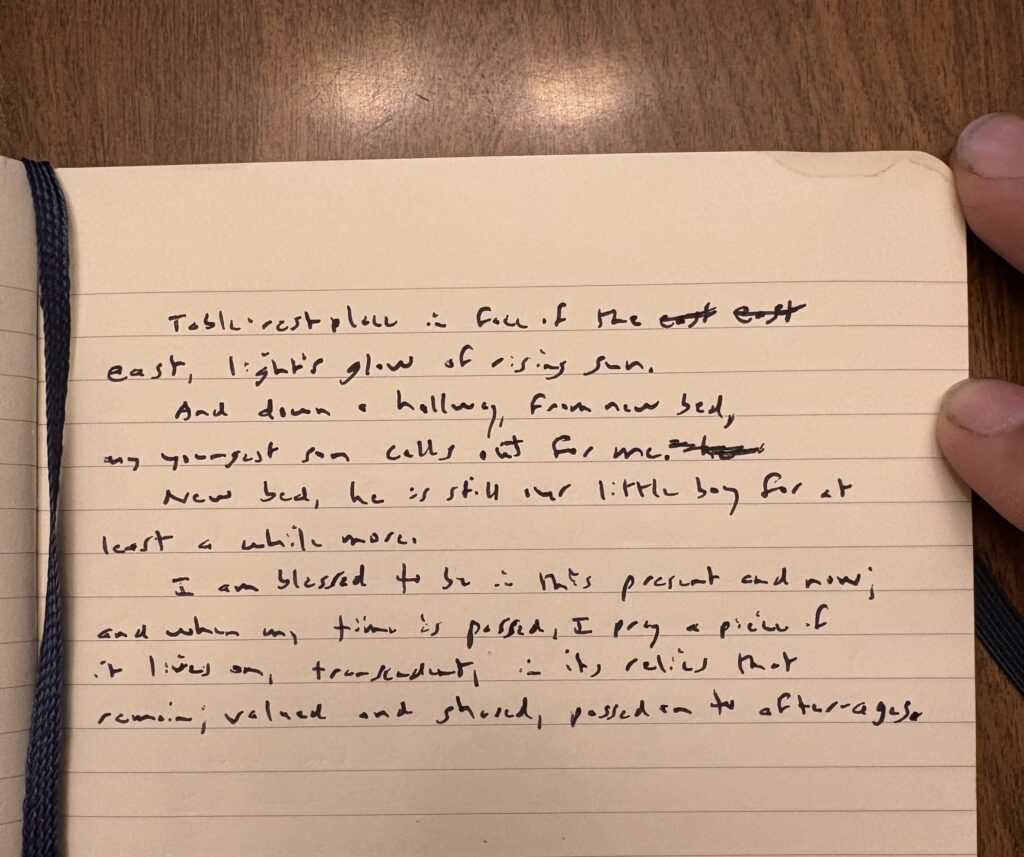 Table-rest place in face of the east east
east, light's glow of rising sun.
And down a hallway, from new bed,
my youngest son calls out for me.
New bed, he is still our little boy for at
least a while more.
I am blessed to be in this present and now;
and when my time is passed, I pray a piece of
it lives on, transcendent, in its relics that
remain; valued and shared, passed on to after-ages.